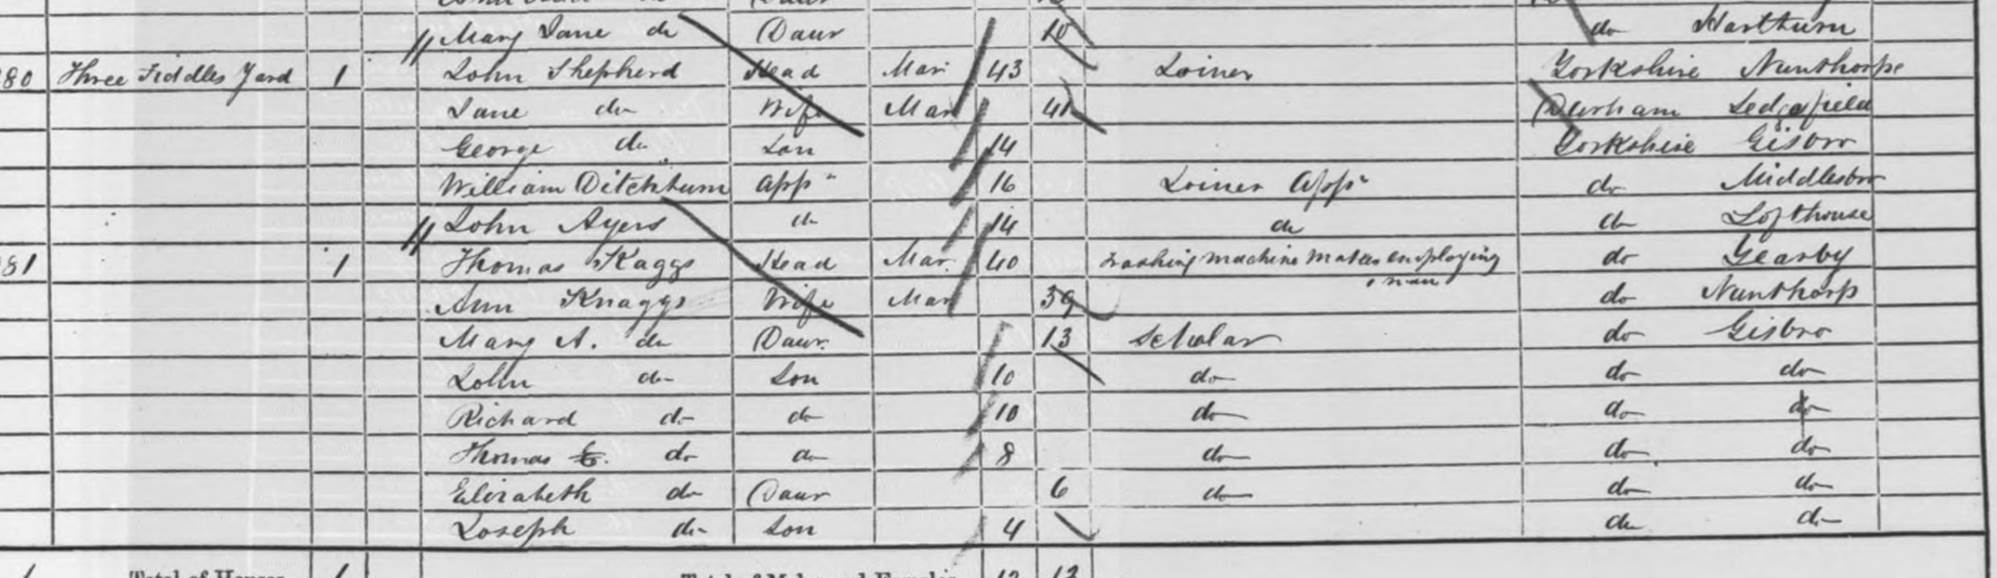 Mary Jane do Daur 10 do Harthurn
80 Three Fiddles Yard 1 John Shepherd Head Mar 43 Joiner Yorkshire Nunthorpe
Jane do Wife Mar 41 Durham Sedgefield
George do Son 14 Yorkshire Gisbro
William Ditchburn app 16 Joiner App do Middlesbro
John Ayers do 14 do do Lofthouse
81 1 Thomas Kaggs Head Mar 40 Washing machine maker employing 1 man do Yearby
Ann Knaggs Wife Mar 39 do Nunthorp
Mary A. do Daur. 13 Scholar do Gisbro
John do Son 10 do do do
Richard do do 10 do do do
Thomas do do 8 do do do
Elizabeth do Daur 6 do do do
Joseph do Son 4 do do
Total of Houses 1 Total of Males and Females 12 12